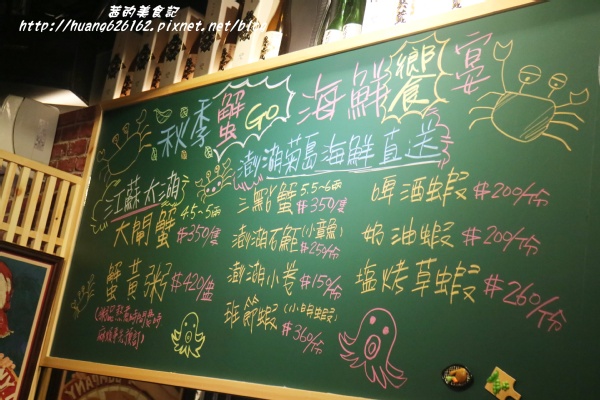 茜的美食記
http://huang626162.pixnet.net/blog
秋季蟹GO 海鮮饗宴
澎湖菊島海鮮直送
江蘇太湖
大閘蟹 4.5~5兩
#350/隻
蟹黃粥 #420/盅
三點蟹 5.5~6兩
#350/隻
澎湖石魟(小章魚)
#250/份
澎湖小卷 #150/份
班節蝦(小明蝦)
#360/份
啤酒蝦 #200/份
奶油蝦 #200/份
塩烤草蝦 #260/份